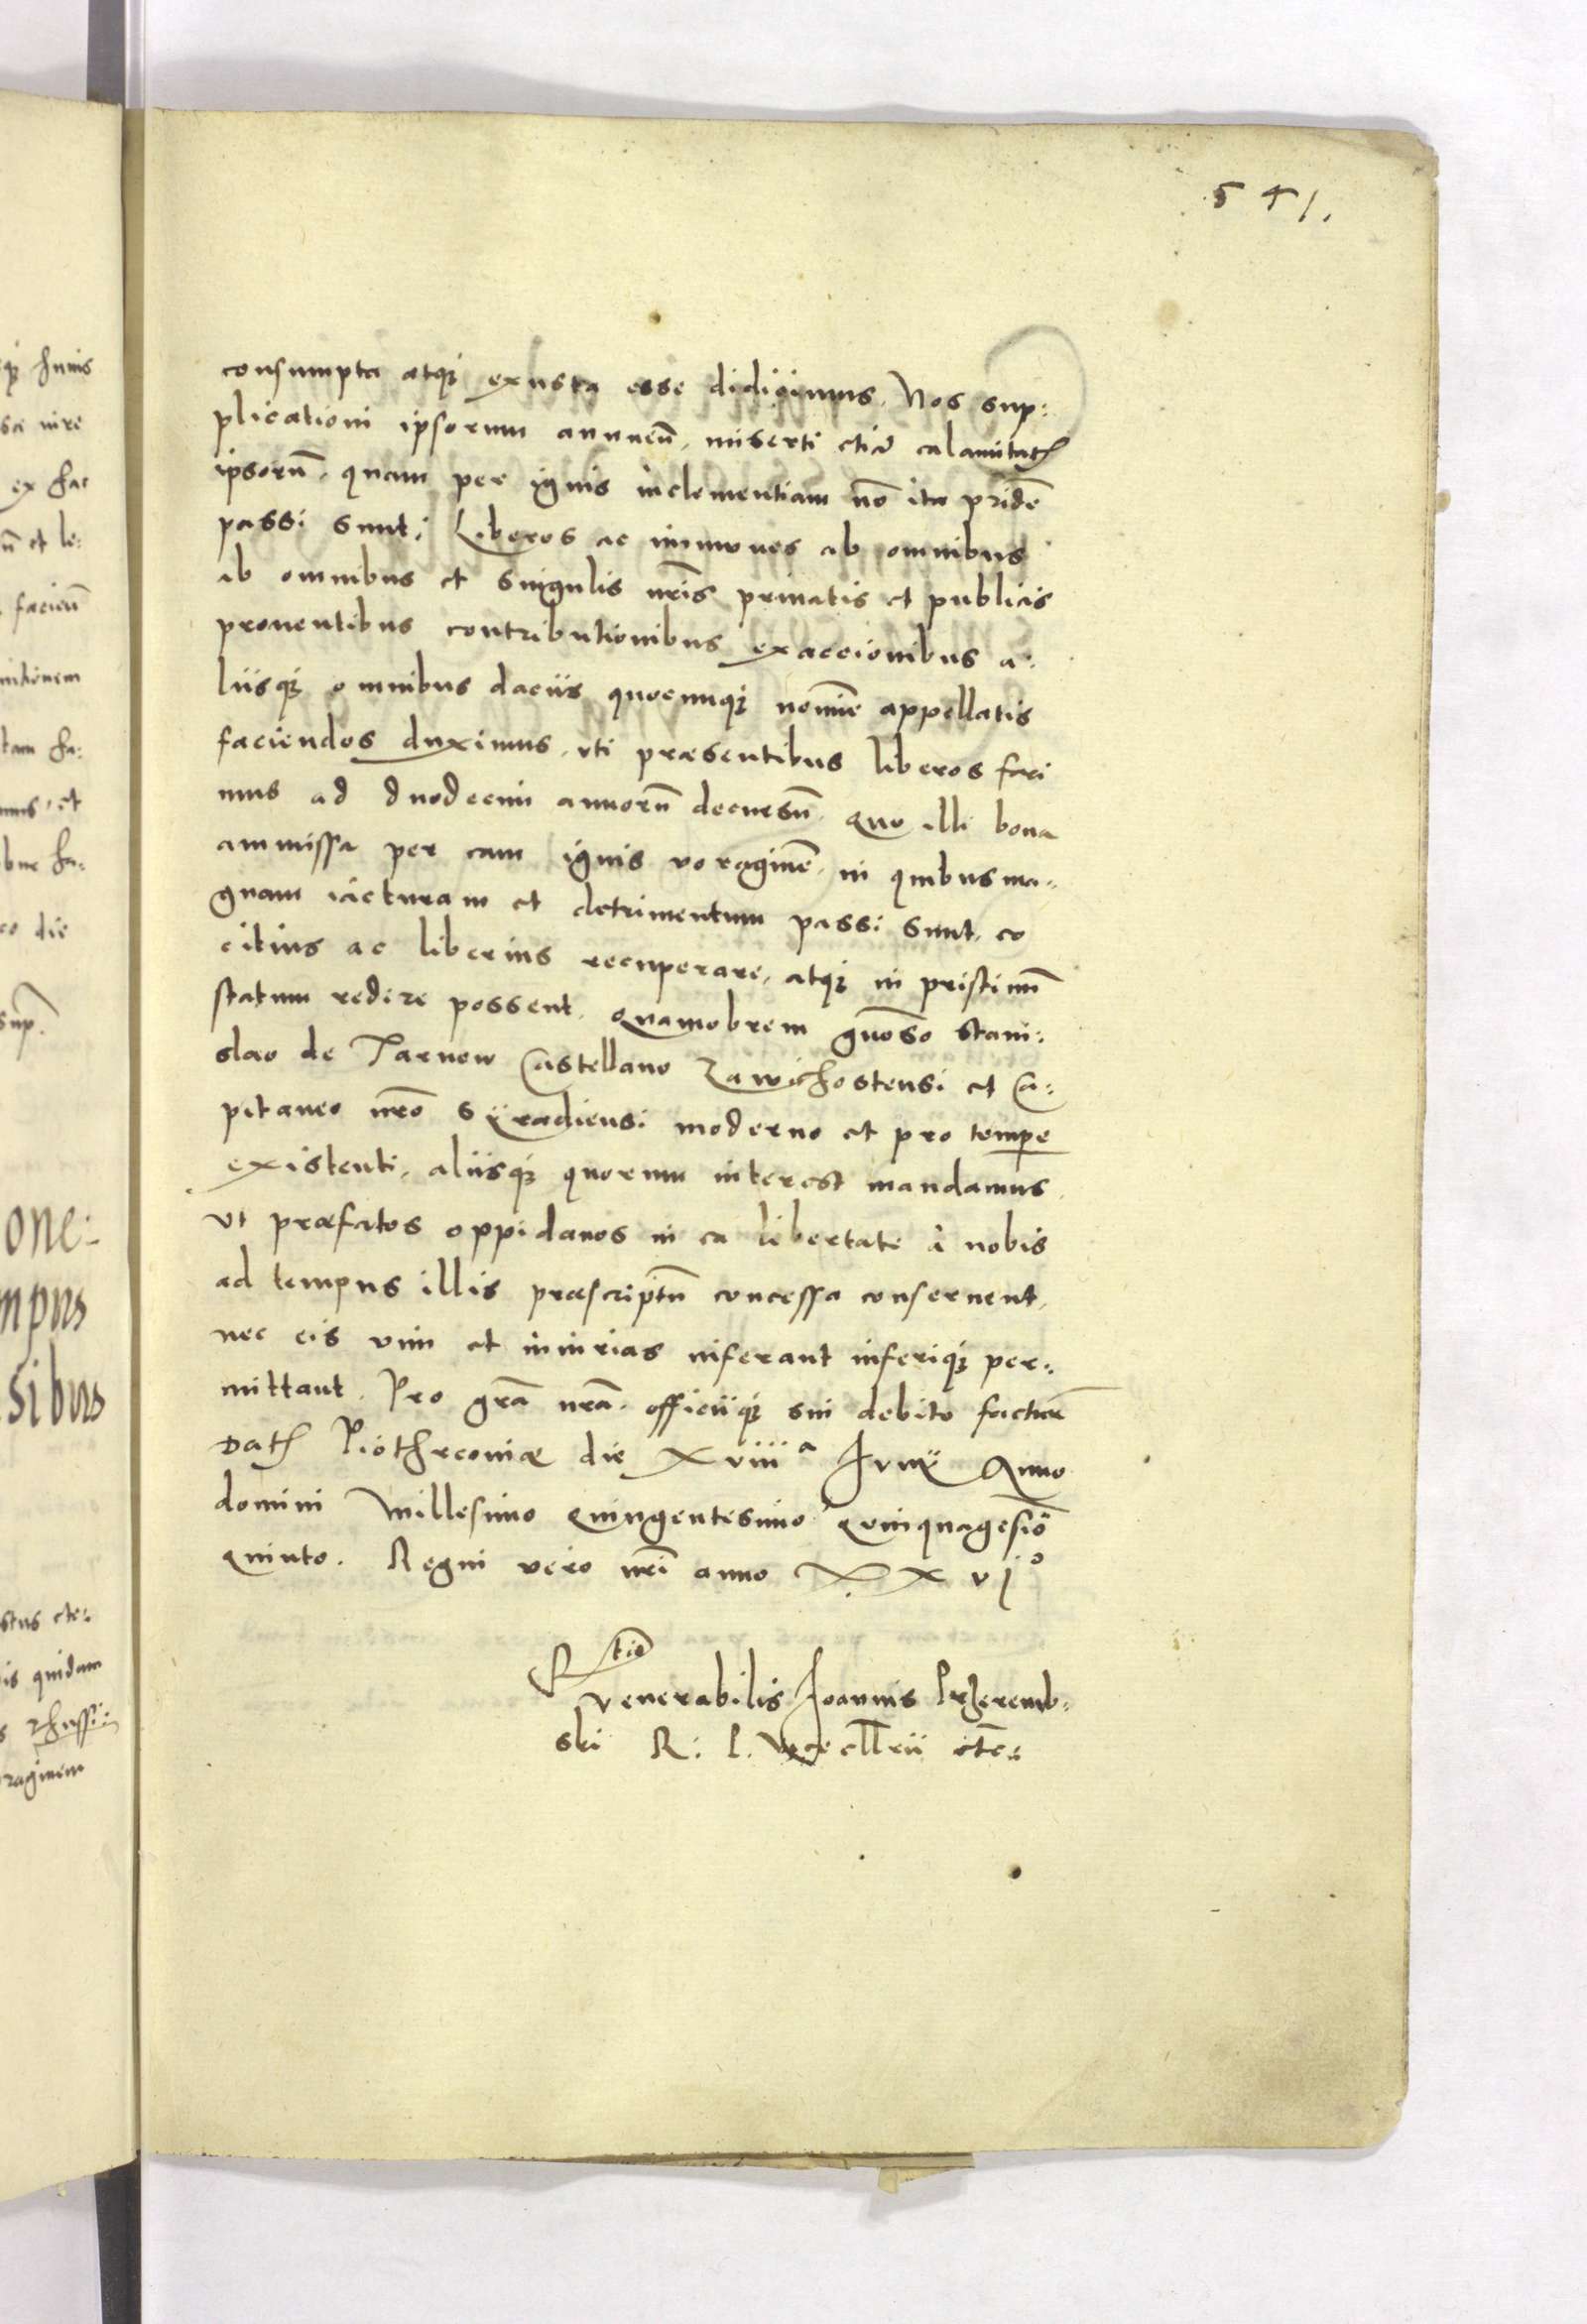 541.
consumpta atq₃ exusta esse didicimus. Nos sup:
plicationi ipsorum annueñ. miserti etiã calamitatꝭ
ipsorũ. quam per ignis inclementiam nõ ita pridẽ
passi sunt; Liberos ac immunes ab omnibus
ab omnibus et singulis nr̃is priuatis et publicis
prouentibus contributionibus exaccionibus a:
liisq₃ omnibus daciis quocumq₃ nomiñe appellatis
faciendos duximus. uti præsentibus liberos faci
mus ad duodecim annorũ decursũ. Quo illi bona
ammissa per eam ignis voraginẽ. in quibus ma:
gnam iacturam et detrimentum passi sunt, eo
citius ac liberius recuperare, atq₃ in pristinũ
statum redire possent. Quamobrem gñoso Stani:
slao de Tarnow Castellano Zawichostensi et Ca:
pitaneo nr̃o Syradiensi moderno et pro tempe
existenti, aliisq₃ quorum interest mandamus
ut præfatos oppidanos in ea libertate à nobis
ad tempus illis præscriptũ concessa conseruent,
nec eis vim et iniurias inferant inferiq₃ per:
mittant. Pro grã nr̃a. officiiq₃ sui debito facturi
Datꝭ Piothrcouiæ die XVIIIᵃ Iunÿ Anno
domini Millesimo Quingentesimo Quinquagesiõ
Quinto. Regni vero nr̃i anno XXVIº
Rtio
Venerabilis Ioannis Przeremb:
ski R. P. Vicecllrii etc:
q₃ huius
iure
ex hac
et le:
facieñ
tam fa:
et
eo die
sup.
one:
mpus
sibus
stus etc:
is quidam
raginem